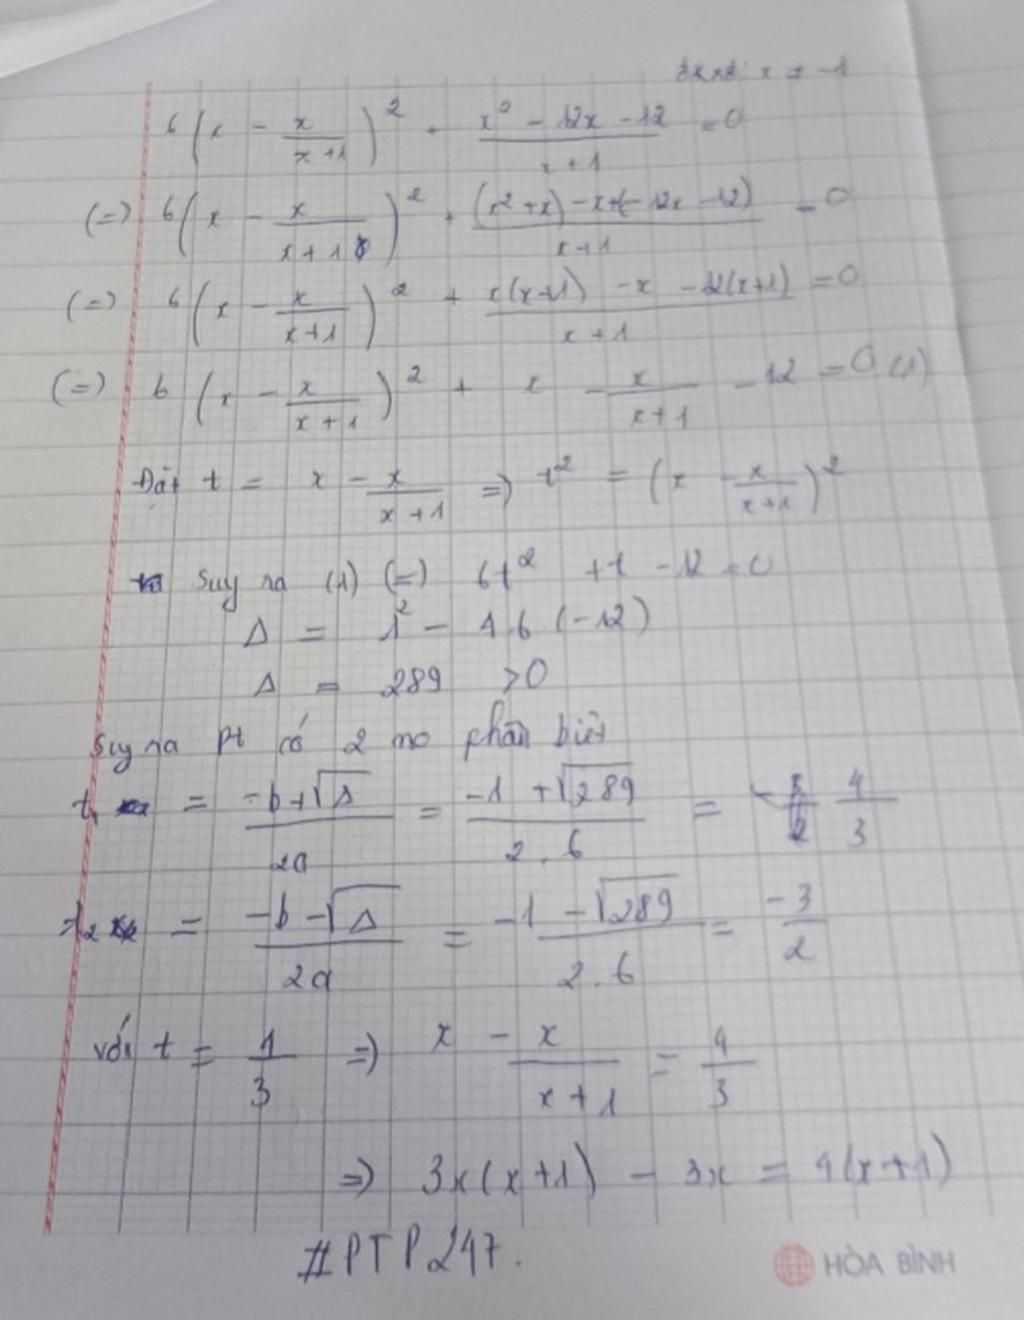 ĐKXĐ: x ≠ -1
6(x - x/(x+1))² + (x² - 12x - 12)/(x+1) = 0
(=) 6(x - x/(x+1))² + ((x² + x) - x + (-12x - 12))/(x+1) = 0
(=) 6(x - x/(x+1))² + (x(x+1) - x - 12(x+1))/(x+1) = 0
(=) 6(x - x/(x+1))² + x - x/(x+1) - 12 = 0 (1)
Đặt t = x - x/(x+1) => t² = (x - x/(x+1))²
Suy ra (1) (=) 6t² + t - 12 = 0
Δ = 1² - 4.6(-12)
Δ = 289 > 0
Suy ra pt có 2 no phân biệt
t₁ = (-b+√Δ)/2a = (-1 + √289)/(2.6) = 4/3
t₂ = (-b-√Δ)/2a = (-1 - √289)/(2.6) = -3/2
với t = 4/3 => x - x/(x+1) = 4/3
=> 3x(x+1) - 3x = 4(x+1)
#PTP247.
HÒA BÌNH